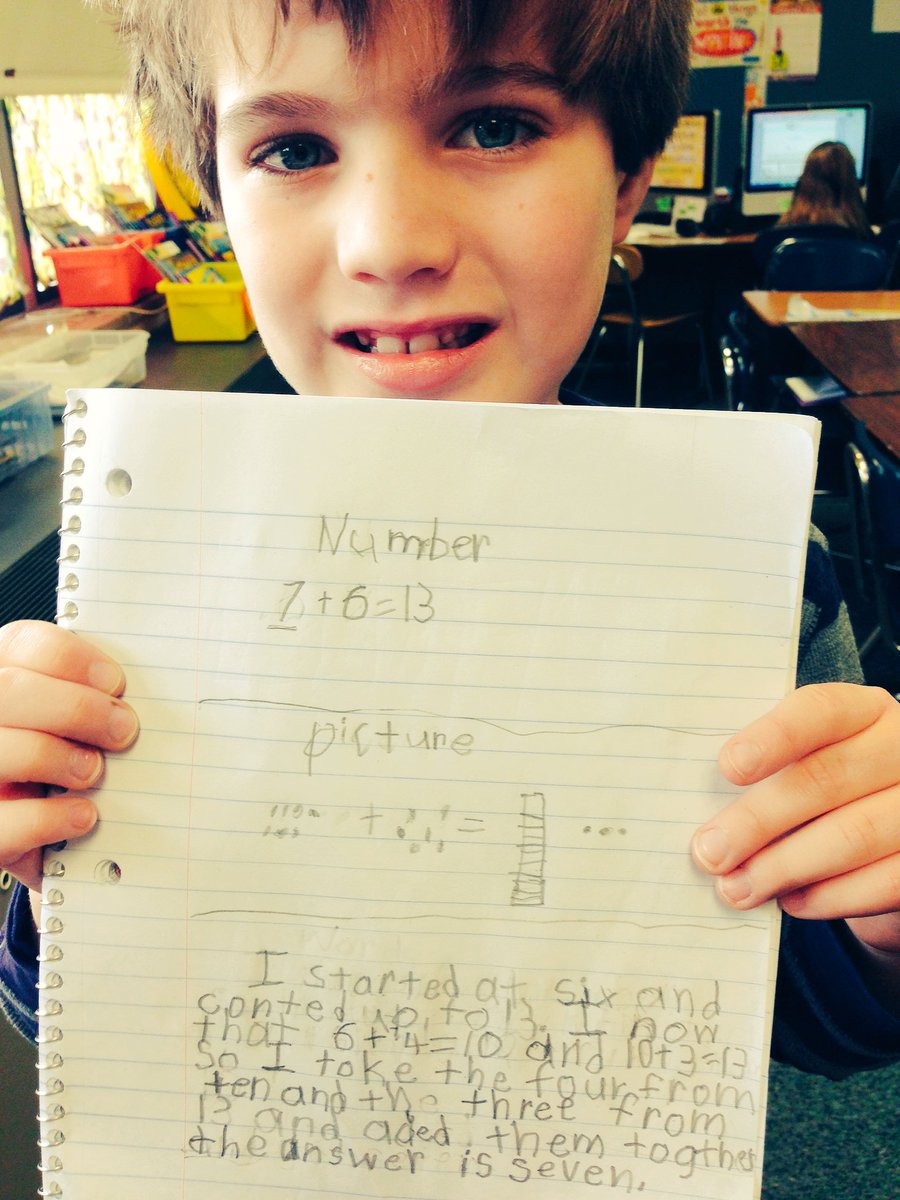 Number
7+6=13
picture
+ =
Word
I started at six and
conted up to 13. I now
that 6+4=10 and 10+3=13
so I toke the four from
ten and the three from
13 and aded them togther
the answer is seven.